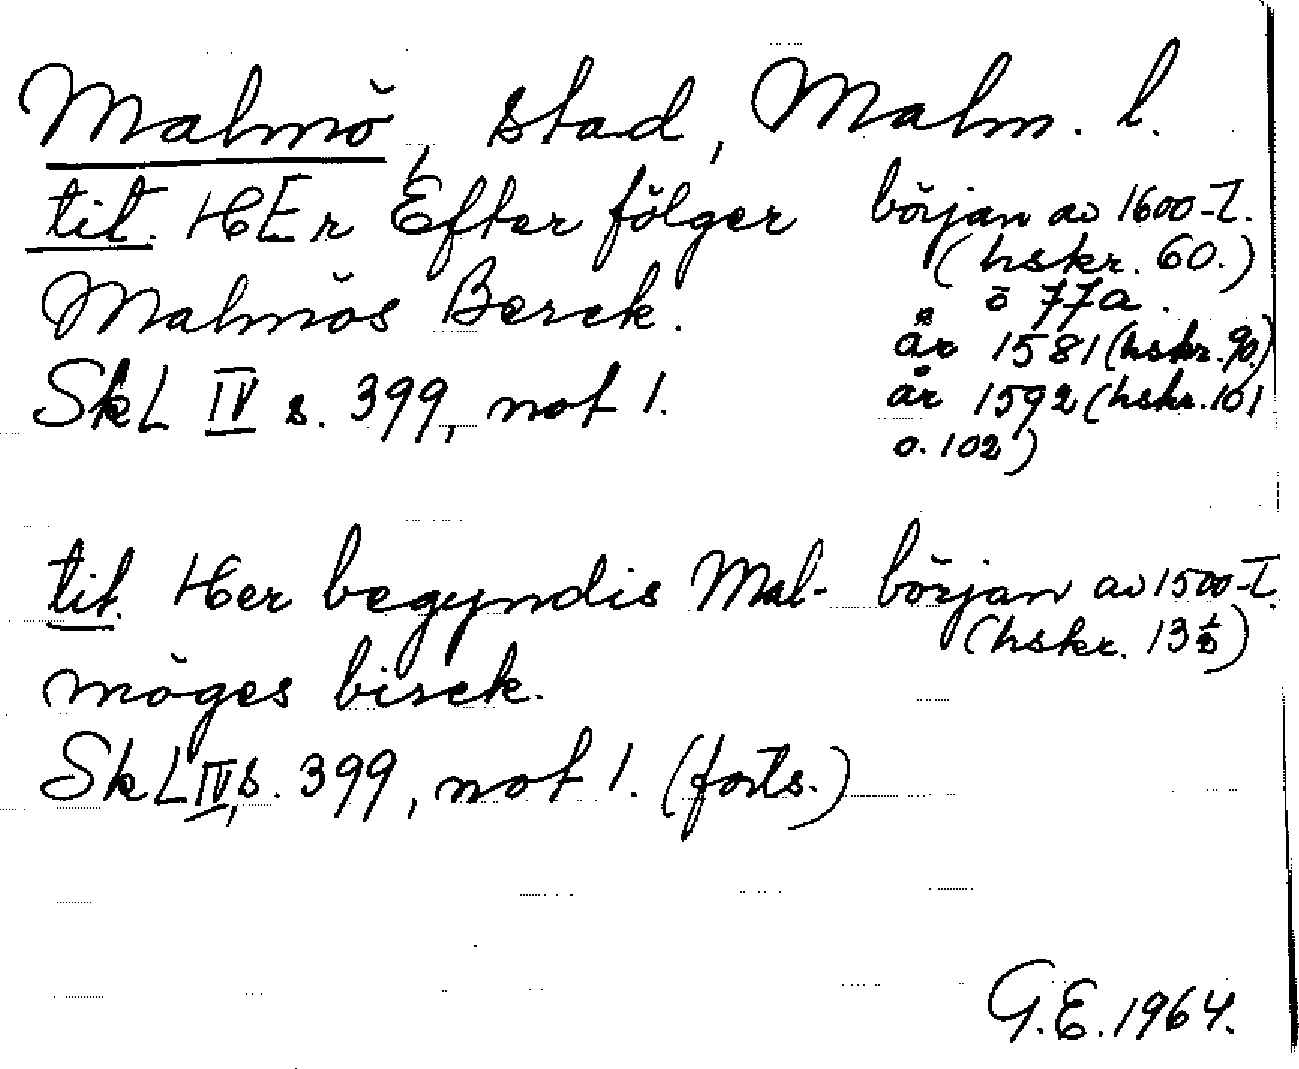 Malmö, stad, Malm. l.
tit. HEr Efter følger början av 1600-T.
(hskr. 60.)
Malmøs Berck. o 77a.
år 1581 (hskr. 90.)
SkL IV s. 399, not 1. år 1592 (hskr. 101
o. 102)
tit. Her begyndis Mal- början av 1500-T.
(hskr. 13
møges birck.
SkL IV, s. 399, not 1. (forts.)
G.E. 1964.